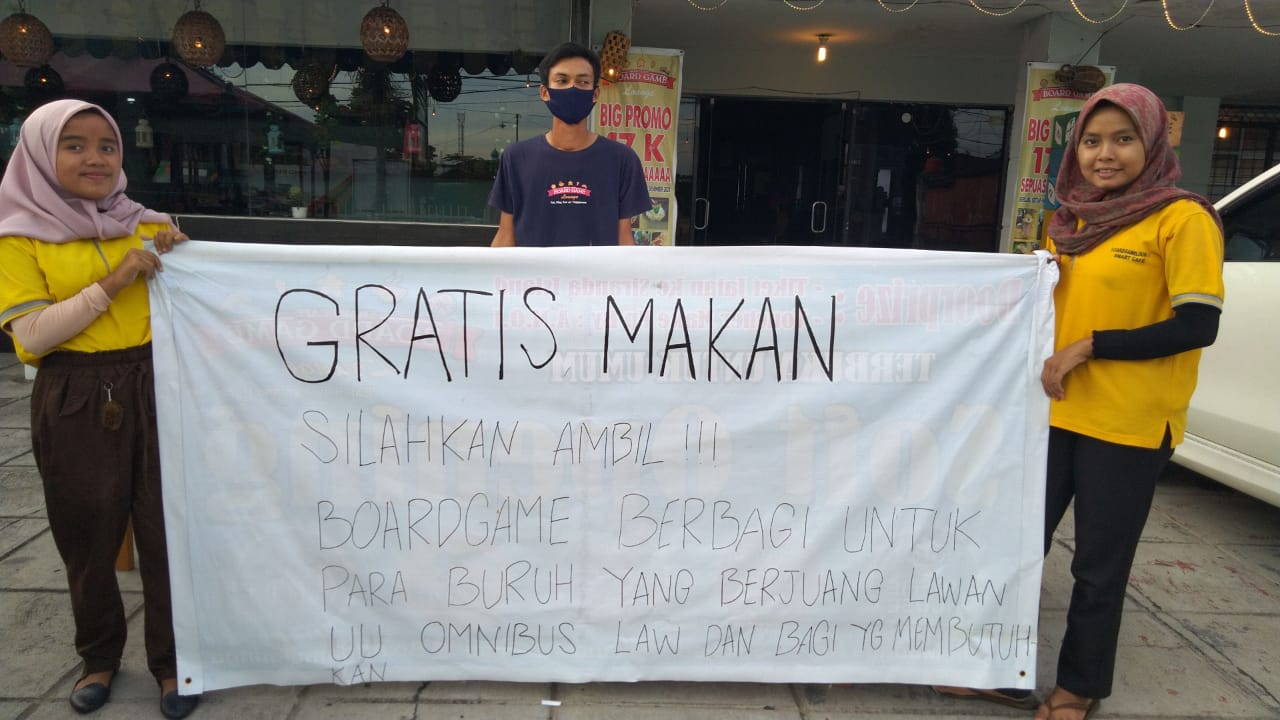 BOARD GAME
Lounge
BIG PROMO
17 K
BOARD GAME
Lounge
BOARD GAME
BIG
SMART CAFE
GRATIS MAKAN
SILAHKAN AMBIL !!!
BOARDGAME BERBAGI UNTUK
PARA BURUH YANG BERJUANG LAWAN
UU OMNIBUS LAW DAN BAGI YG MEMBUTUH-
KAN